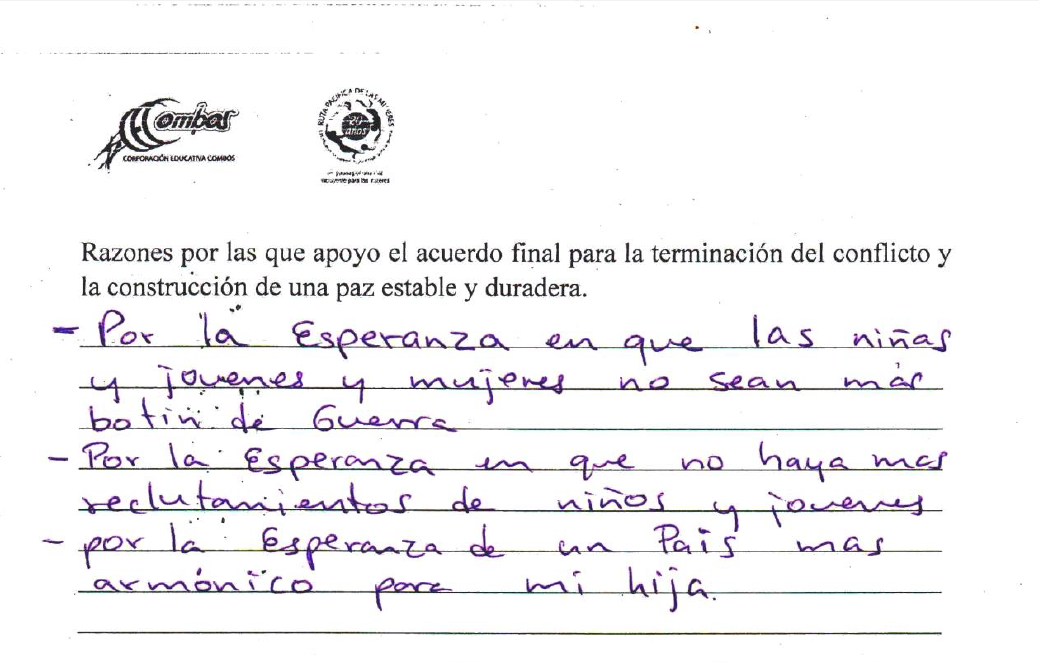 Combos
CORPORACIÓN EDUCATIVA COMBOS
RUTA PACIFICA DE LAS MUJERES
20 años
para las mujeres
Razones por las que apoyo el acuerdo final para la terminación del conflicto y
la construcción de una paz estable y duradera.
- Por la Esperanza en que las niñas
y jovenes y mujeres no sean más
botin de Guerra
- Por la Esperanza en que no haya mas
reclutamientos de niños y jovenes
- por la Esperanza de un Pais mas
armónico para mi hija.